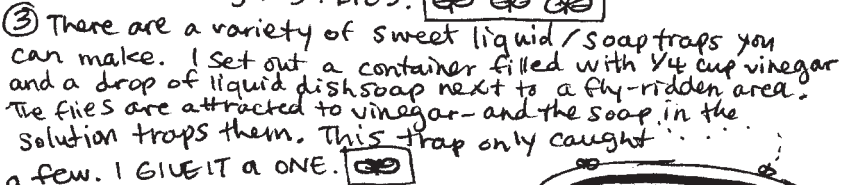 ③ There are a variety of sweet liquid/soap traps you
can make. I set out a container filled with 1/4 cup vinegar
and a drop of liquid dishsoap next to a fly-ridden area.
The flies are attracted to vinegar - and the soap in the
solution traps them. This trap only caught
a few. I GIVE IT a ONE.